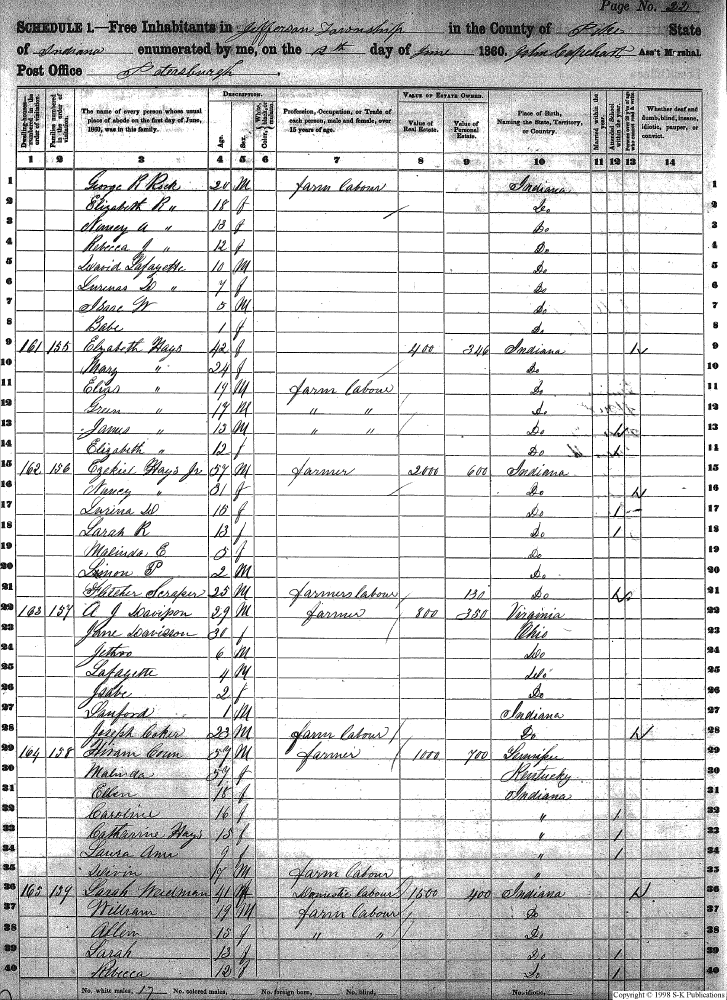 Page No. 22
SCHEDULE 1.—Free Inhabitants in Jefferson Township in the County of Pike State
of Indiana enumerated by me, on the day of June 1860. John Ass't Marshal
Post Office Petersburgh.
DESCRIPTION. VALUE OF ESTATE OWNED.
Dwelling-houses—numbered in the order of visitation. Families numbered in the order of visitation. The name of every person whose usual place of abode on the first day of June, 1860, was in this family. Age. Sex. Color, White, black, or mulatto. Profession, Occupation, or Trade of each person, male and female, over 15 years of age. Value of Real Estate. Value of Personal Estate. Place of Birth, Naming the State, Territory, or Country. Married within the year. Attended School within the year. Persons over 20 y'rs of age who cannot read & write. Whether deaf and dumb, blind, insane, idiotic, pauper, or convict.
1 2 3 4 5 6 7 8 9 10 11 12 13 14
1 George R Rock 20 M farm labour Indiana 1
2 Elizabeth R " 18 f Do 2
3 Nancy A " 13 f Do 3
4 Rebecca J " 12 f Do 4
5 David Lafayette 10 M Do 5
6 Lurenas D " 7 f Do 6
7 Isaac W 5 M Do 7
8 Babe 1 f Do 8
9 161 155 Elizabeth Hays 42 f 400 346 Indiana 9
10 Mary " 24 f Do 10
11 Elias " 19 M farm labour Do 11
12 Green " 17 M " " Do 12
13 James " 13 M " " Do 13
14 Elizabeth " 12 f Do 14
15 162 156 Ezekiel Hays Jr 57 M farmer 2000 600 Indiana 15
16 Nancy " 31 f Do 16
17 Lurina D 15 f Do 1 17
18 Sarah R 13 f Do 1 18
19 Malinda E 5 f Do 19
20 Simon P 2 M Do 20
21 Fletcher Scraper 25 M farmers labour 130 Do 21
22 163 157 A J Davison 29 M farmer 800 350 Virginia 22
23 Jane Davisson 30 f Ohio 23
24 Jethro 6 M Do 24
25 Lafayette 4 M Do 25
26 Isabe 2 f Do 26
27 Sanford 1 M Indiana 27
28 Joseph Coker 23 M farm labour Do 28
29 164 158 Hiram Conn 57 M farmer 1000 700 29
30 Malinda 57 f Kentucky 30
31 Ellen 18 f Indiana 31
32 Caroline 16 f " 1 32
33 Catharine Hays 15 f " 1 33
34 Laura Ann 9 f " 1 34
35 M farm labour " 35
36 165 159 Sarah Weedman 41 Domestic labour 1500 400 Indiana 36
37 William 19 M farm labour Do 37
38 Allen 15 f " " Do 38
39 Sarah 13 f Do 1 39
40 Rebecca 12 f Do 1 40
No. white males, 17 No. colored males, No. foreign born, No. blind, No. idiotic,
Copyright © 1998 S-K Publications